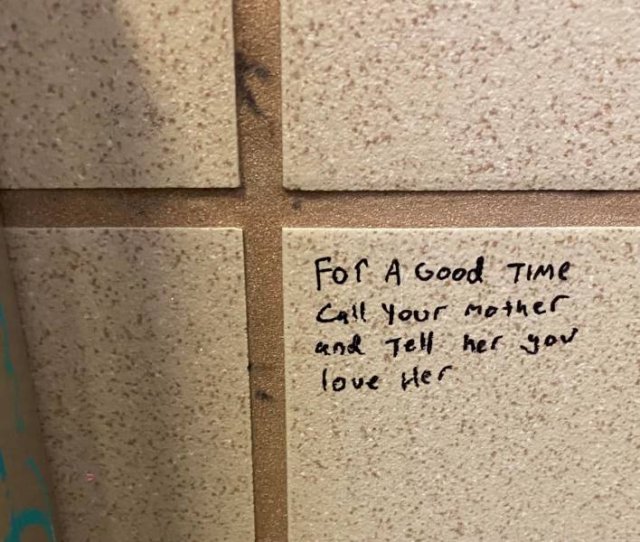 For A Good TIMe
Call Your mother
and Tell her you
love Her